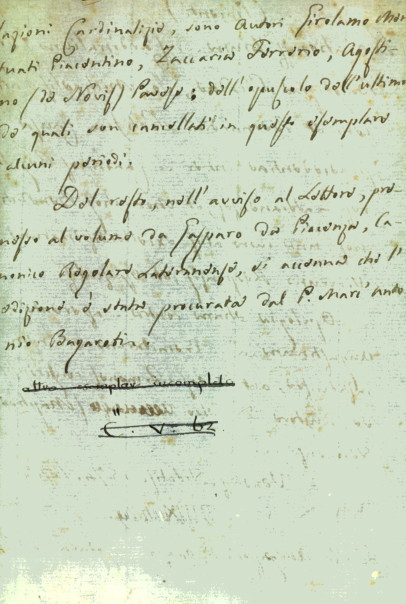 lazioni Cardinalizie, sono Autori Girolamo Man
tuati Piacentino, Zaccaria Ferrerio, Agosti-
no (de Novis) Pavese; dell'opuscolo dell'ultimo
de' quali son cancellati in questo esemplare
alcuni periodi.
Del resto, nell'avviso al Lettore, pre
messo al volume da Gasparo da Piacenza, Ca-
nonico Regolare Lateranense, si accenna che l'
edizione è stata procurata dal P. Marc'Anto
nio Bagarotti.
altro esemplare incompleto
C. V. 62